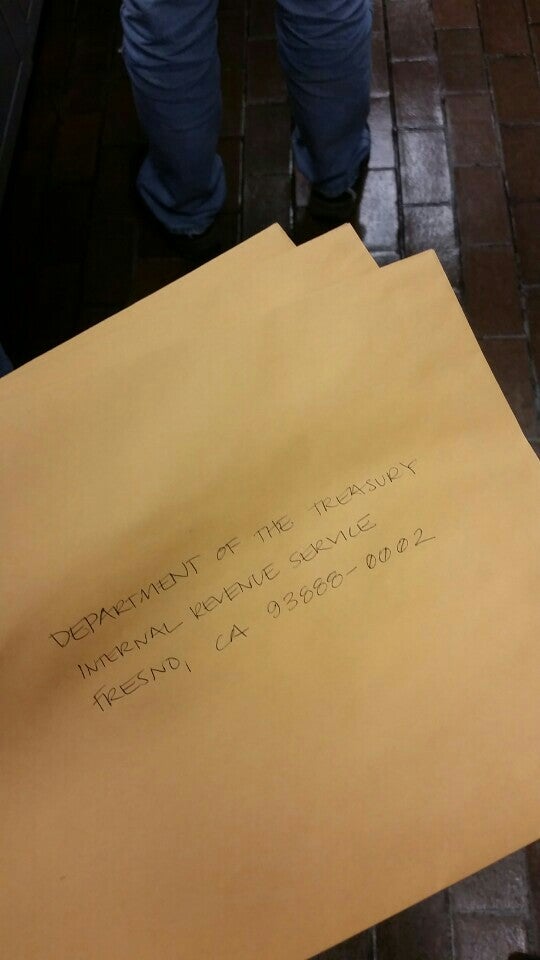 DEPARTMENT OF THE TREASURY
INTERNAL REVENUE SERVICE
FRESNO, CA 93888-0002